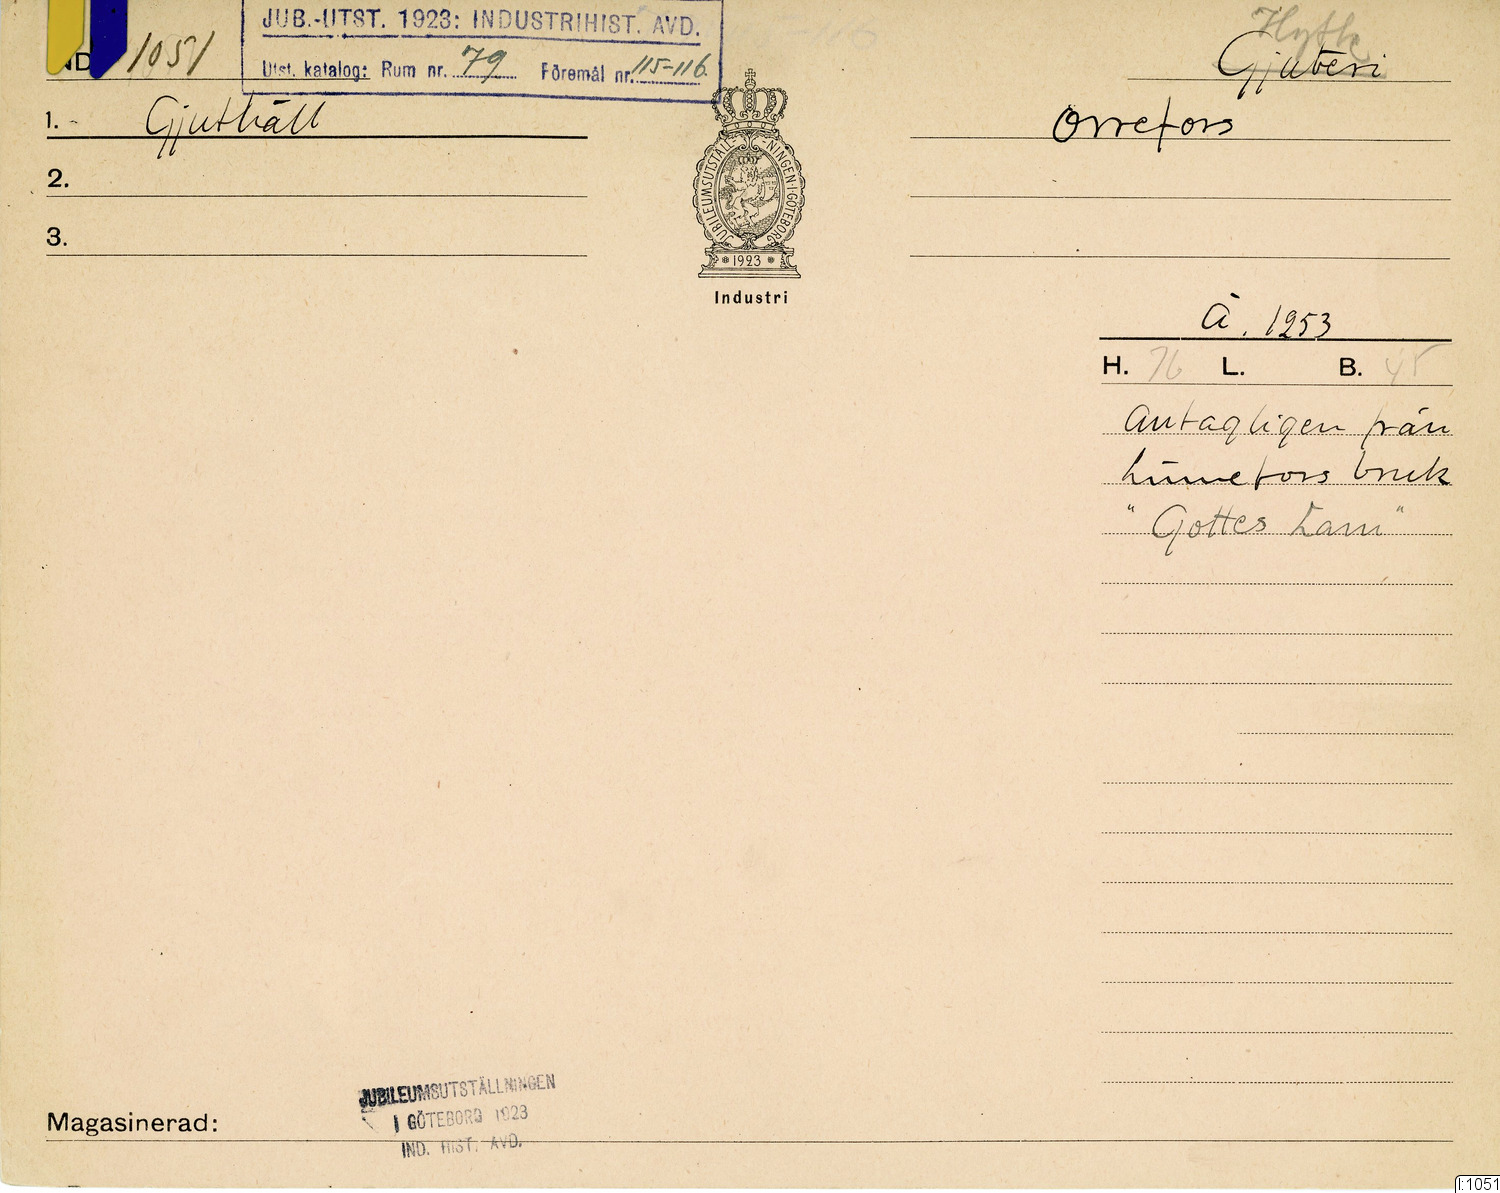 JUB.-UTST. 1923: INDUSTRIHIST. AVD.
Utst. katalog: Rum nr. 79 Föremål nr. 115-116.
ND 1051
Hytte
Gjuteri
1. Gjuthäll
Orrefors
2.
3.
JUBILEUMSUTSTÄLLNINGEN I GÖTEBORG
1923
Industri
Å. 1253
H. 76 L. B. 45
Antagligen från
bruk
"Gottes Lam"
Magasinerad:
JUBILEUMSUTSTÄLLNINGEN
I GÖTEBORG 1923
IND. HIST. AVD.
I:1051